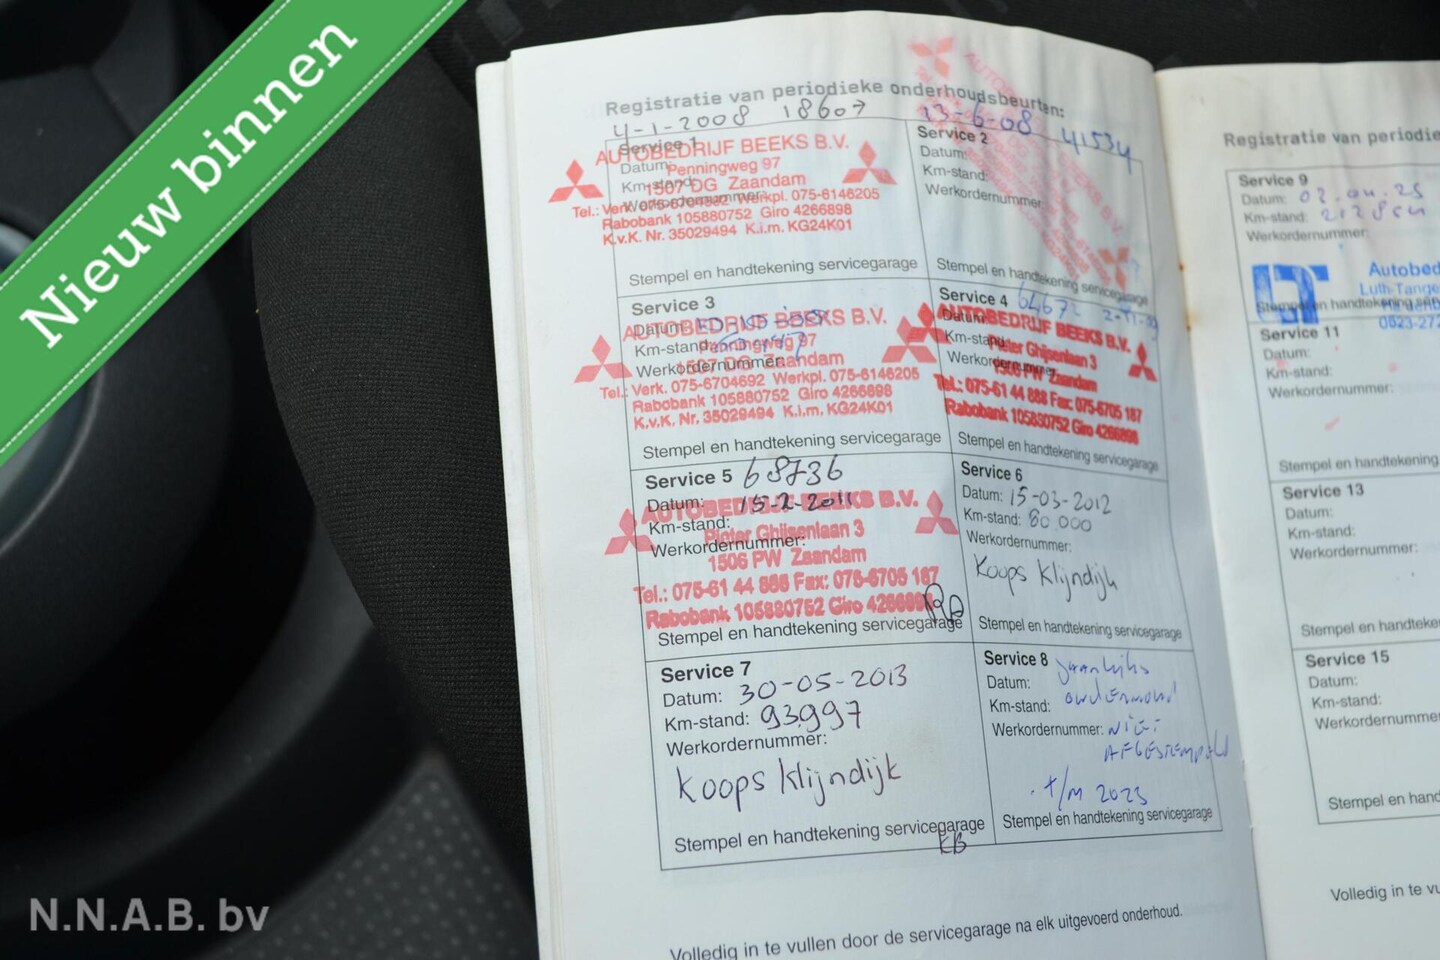 Nieuw binnen
Registratie van periodieke onderhoudsbeurten:
4-1-2008 18607
Service 1
Datum:
Km-stand:
Werkordernummer:
AUTOBEDRIJF BEEKS B.V.
Penningweg 97
1507 DG Zaandam
Tel.: Verk. 075-6704692 Werkpl. 075-6146205
Rabobank 105880752 Giro 4266898
K.v.K. Nr. 35029494 K.i.m. KG24K01
Stempel en handtekening servicegarage
13-6-08 41534
Service 2
Datum:
Km-stand:
Werkordernummer:
Stempel en handtekening servicegarage
Service 3
Datum:
Km-stand:
Werkordernummer:
AUTOBEDRIJF BEEKS B.V.
Penningweg 97
1507 DG Zaandam
Tel.: Verk. 075-6704692 Werkpl. 075-6146205
Rabobank 105880752 Giro 4266898
K.v.K. Nr. 35029494 K.i.m. KG24K01
Stempel en handtekening servicegarage
Service 4
Datum:
Km-stand:
Werkordernummer:
AUTOBEDRIJF BEEKS B.V.
Pieter Ghijsenlaan 3
1506 PW Zaandam
Tel.: 075-61 44 888 Fax: 075-6705 187
Rabobank 105880752 Giro 4266898
Stempel en handtekening servicegarage
Service 5 68736
Datum: 15-2-2011
Km-stand:
Werkordernummer:
AUTOBEDRIJF BEEKS B.V.
Pieter Ghijsenlaan 3
1506 PW Zaandam
Tel.: 075-61 44 888 Fax: 075-6705 187
Rabobank 105880752 Giro 4266898
Stempel en handtekening servicegarage
Service 6
Datum: 15-03-2012
Km-stand: 80.000
Werkordernummer:
Koops Klijndijk
Stempel en handtekening servicegarage
Service 7
Datum: 30-05-2013
Km-stand: 93.997
Werkordernummer:
Koops Klijndijk
Stempel en handtekening servicegarage
KB
Service 8 Jaarlijks
Datum:
Km-stand: onderhoud
Werkordernummer: NIET
AFGESTEMPELD
t/m 2023
Stempel en handtekening servicegarage
Volledig in te vullen door de servicegarage na elk uitgevoerd onderhoud.
Registratie van periodie
Service 9
Datum: 02.04.25
Km-stand:
Werkordernummer:
Autobed
Luth-Tange
0523-272
Stempel en handtekening serv
Service 11
Datum:
Km-stand:
Werkordernummer:
Stempel en handtekening
Service 13
Datum:
Km-stand:
Werkordernummer:
Stempel en handteke
Service 15
Datum:
Km-stand:
Werkordernummer
Stempel en hand
Volledig in te vu
N.N.A.B. bv